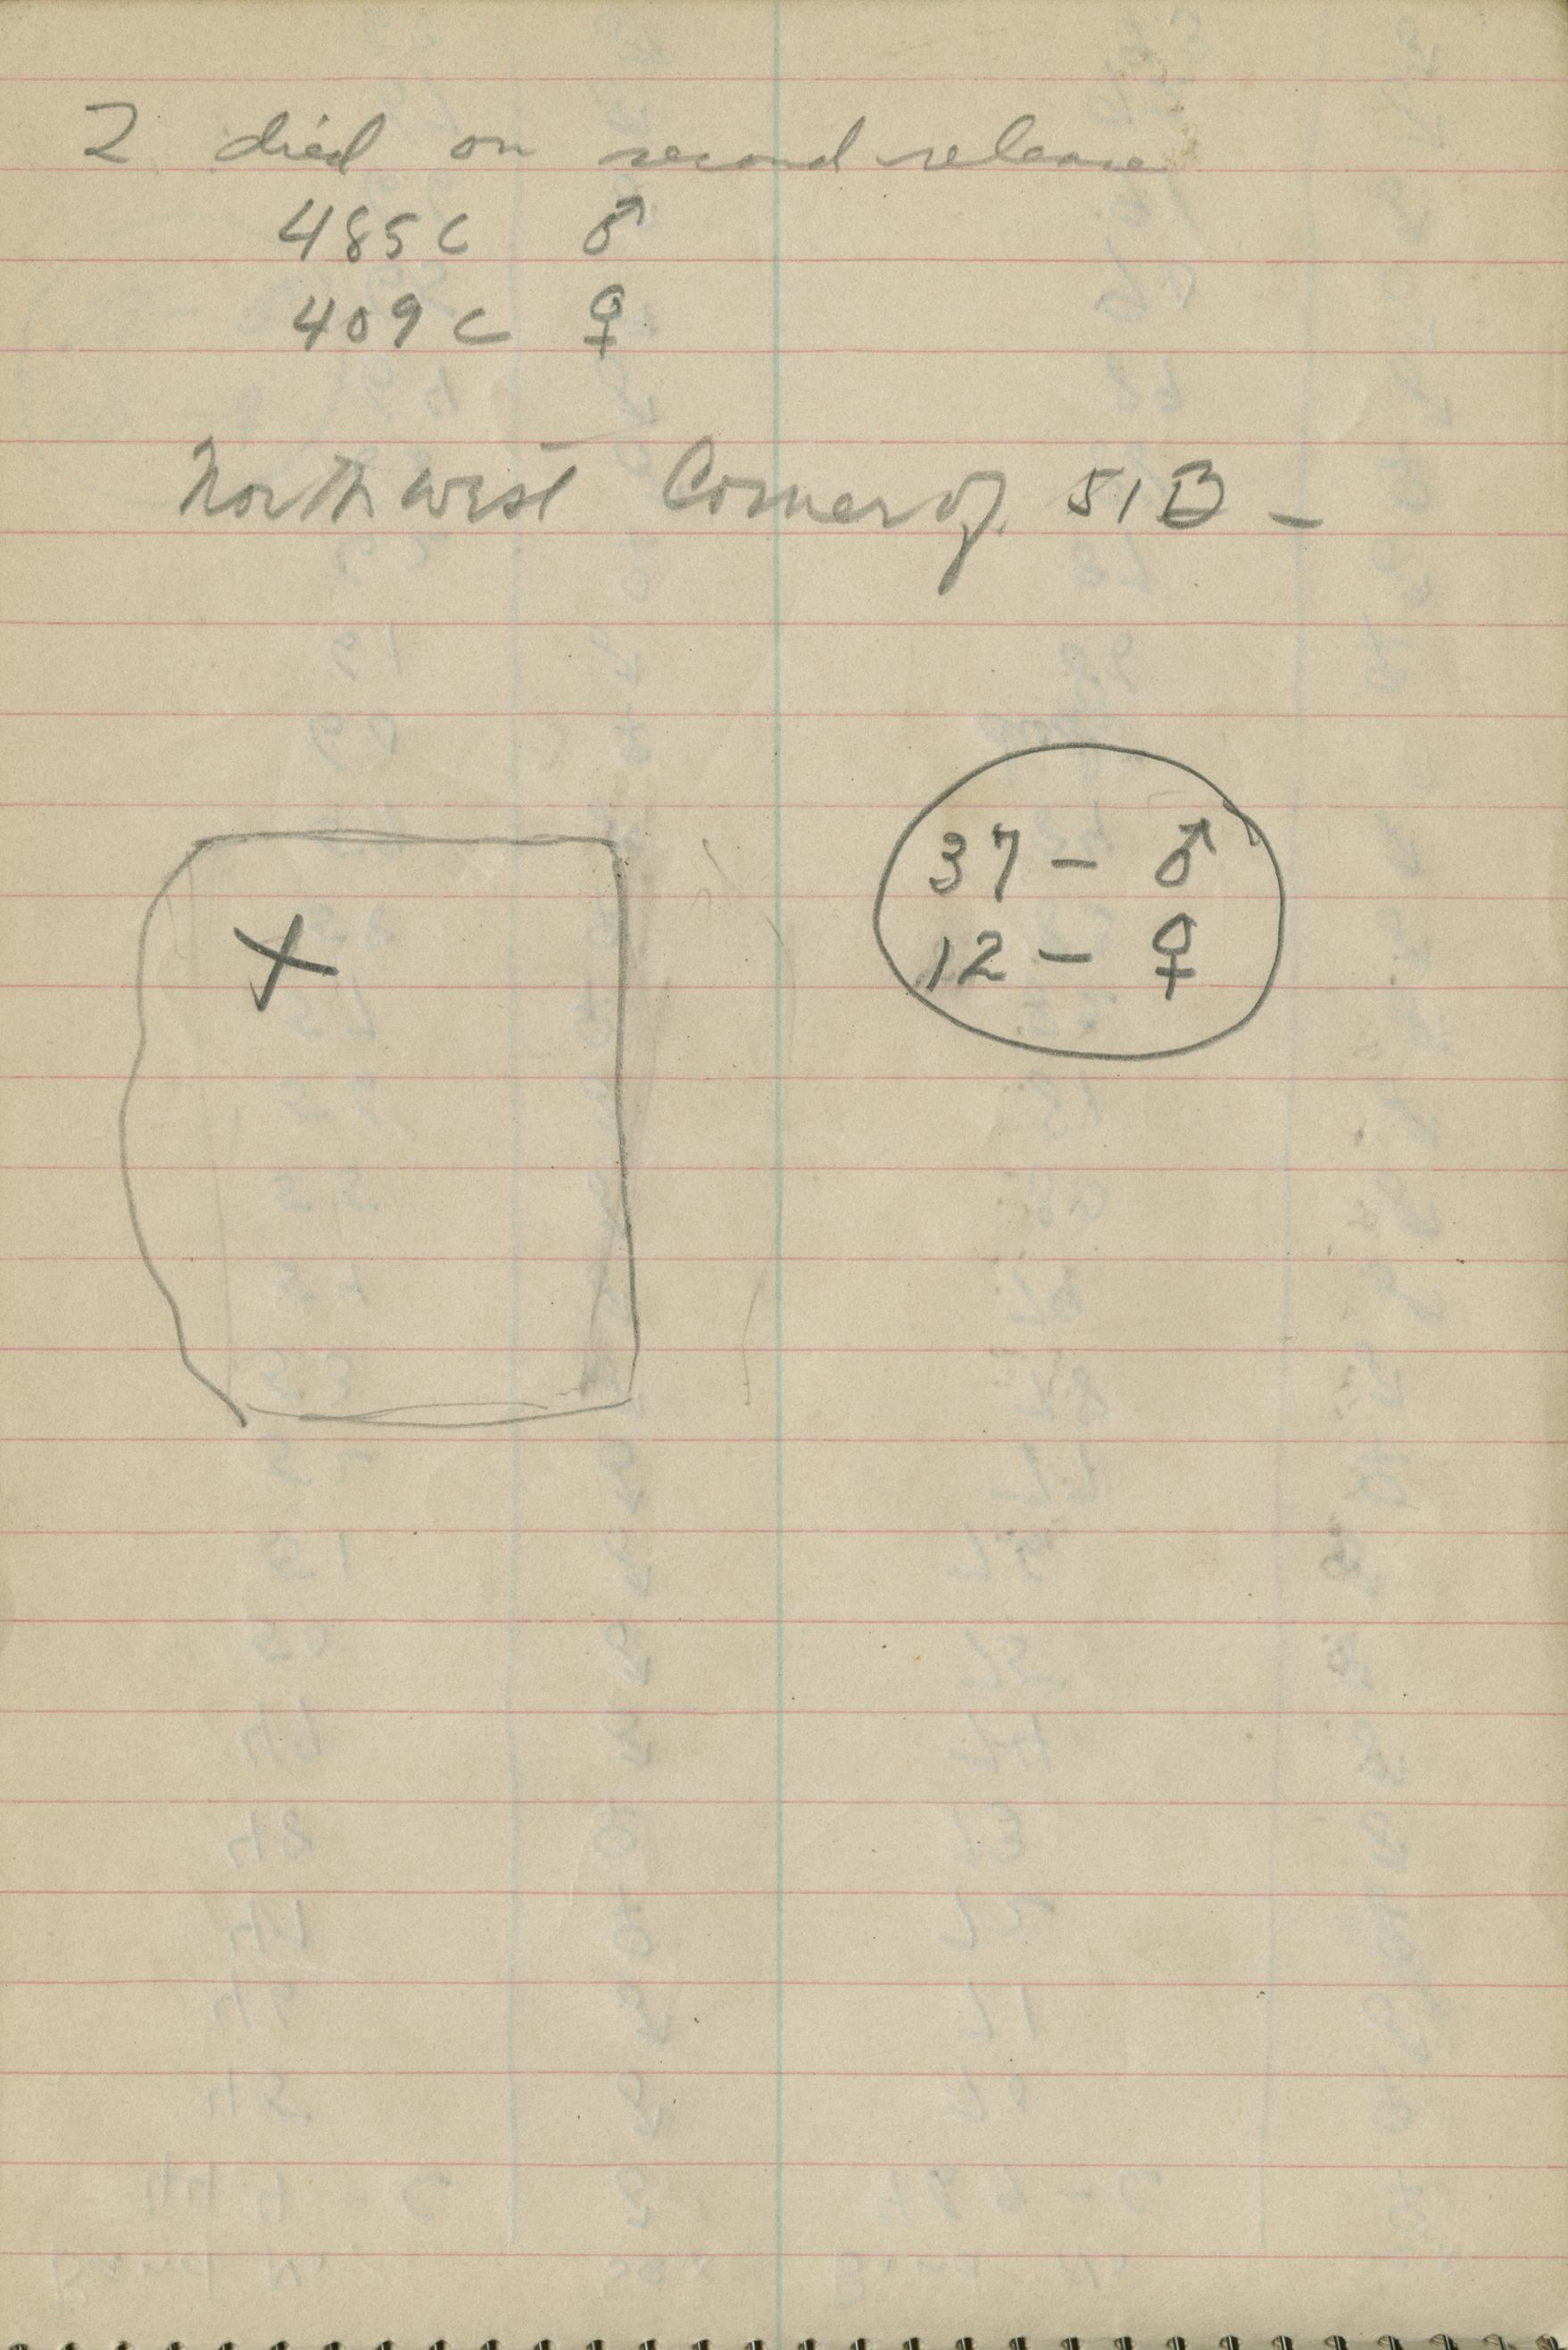 2 died on second release
485 C ♂
409 C ♀
Northwest Corner of 51B –
X
37 – ♂
12 – ♀